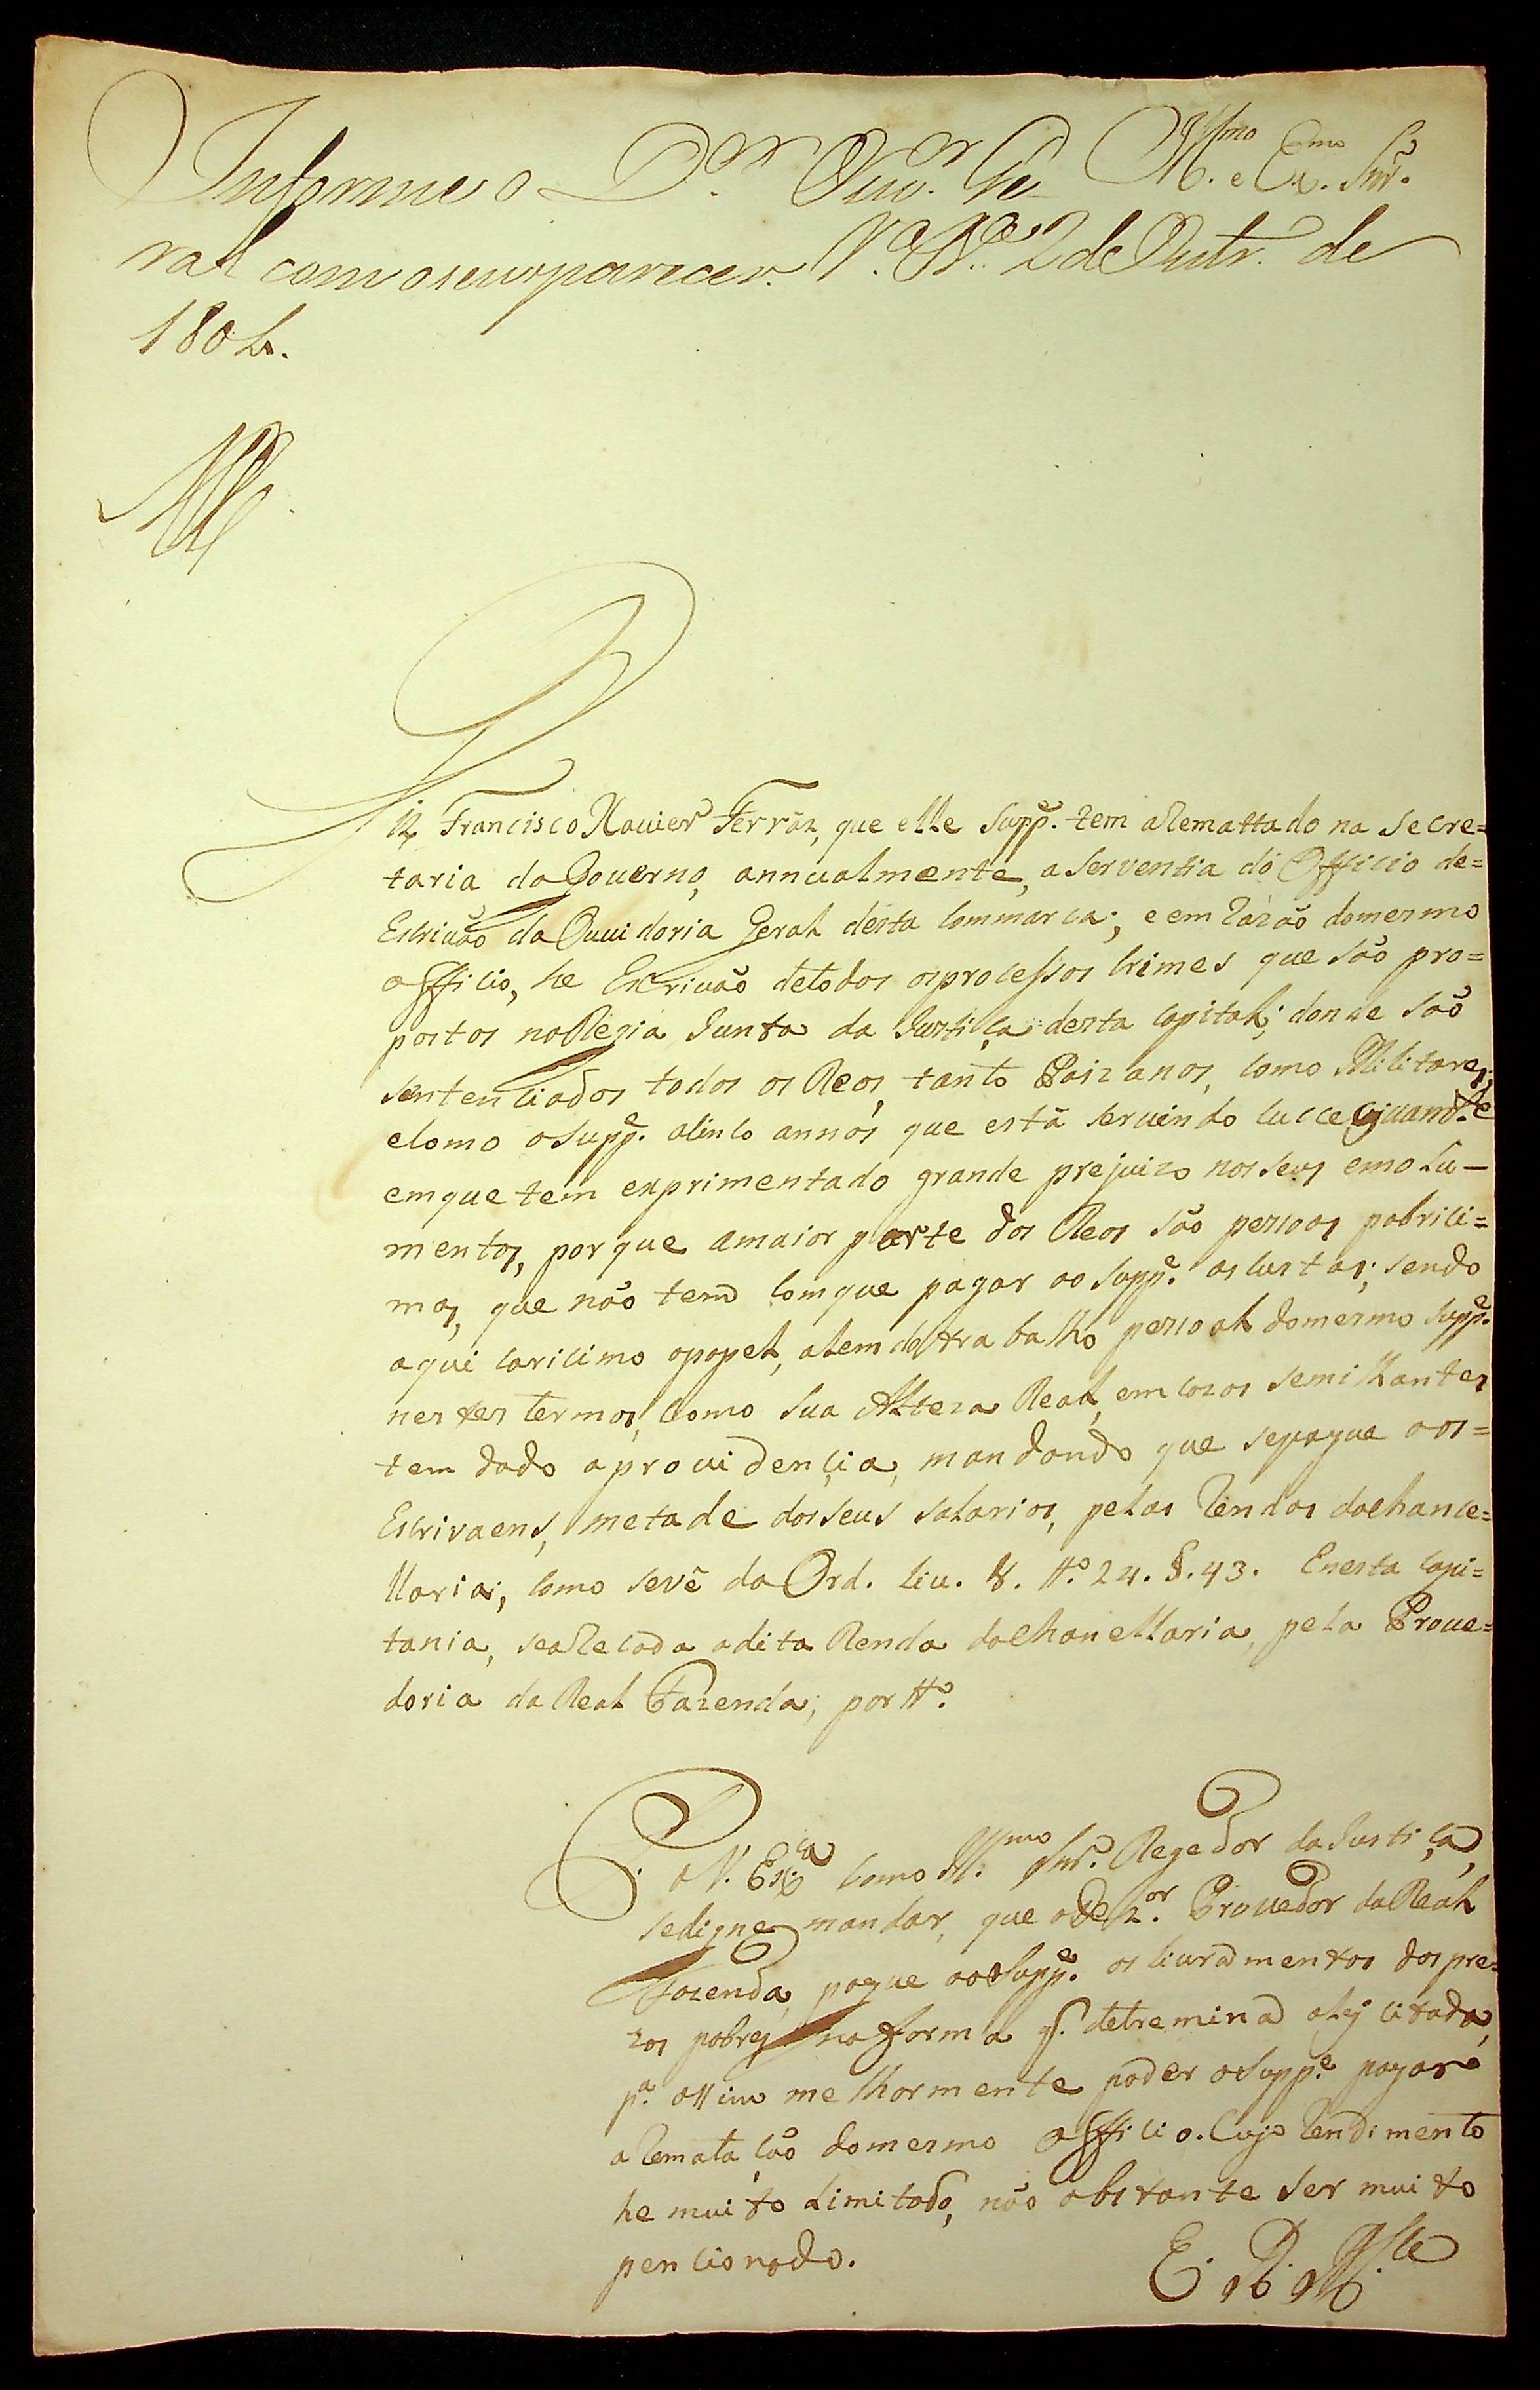 Informe o D.or Ouv.or Ge- Ill.mo e Ex.mo Snr.
ral com o seu parecer. V.a R.a 2 de Outr.o de
1804.
Diz Francisco Xavier Ferráz, que elle Supp.e tem aRemattado na Secre=
taria do Governo, annualmente, a Serventia do Officio de=
Escrivão da Ouvidoria Geral desta Commarca; e em Razão do mesmo
Officio, he Escrivão de todos os processos Crimes que são pro=
postos na Regia Junta da Justiça desta Capital; donde são
sentenciados todos os Reos, tanto Paizanos, como Militares;
e como o Supp.e a cinco annos que está servindo successivam.te
em que tem exprimentado grande prejuizo nos seus emolu-
mentos, porque a maior parte dos Reos são pessoas pobrici=
mas, que não tem com que pagar ao Supp.e as custas; sendo
aqui caricimo o papel, alem do trabalho pessoal do mesmo Supp.e
nestes termos, como Sua Alteza Real, em cazos semilhantes
tem dado a providencia, mandando que se pague aos=
Escrivaens, metade dos seus salarios, pelas Rendas da Chance=
llaria; como se vê da Ord. Liv. 1. tt.o 24. §. 43. E nesta Capi=
tania, se aRecada a dita Renda da Chancellaria, pela Prove=
doria da Real Fazenda; por tt.o
P. a V. Ex.ca como Ill.mo Snr. Regedor da Justiça,
se digne mandar, que o Dez.or Provedor da Real
Fazenda, pague ao Supp.e os livramentos dos pre=
zos pobres na forma q. detremina a Ley citada,
p.a assim melhormente poder o Supp.e pagar
a Rematação do mesmo Officio. Cujo Rendimento
he muito Limitado, não obstante ser muito
pencionado.
E. R. M.ce